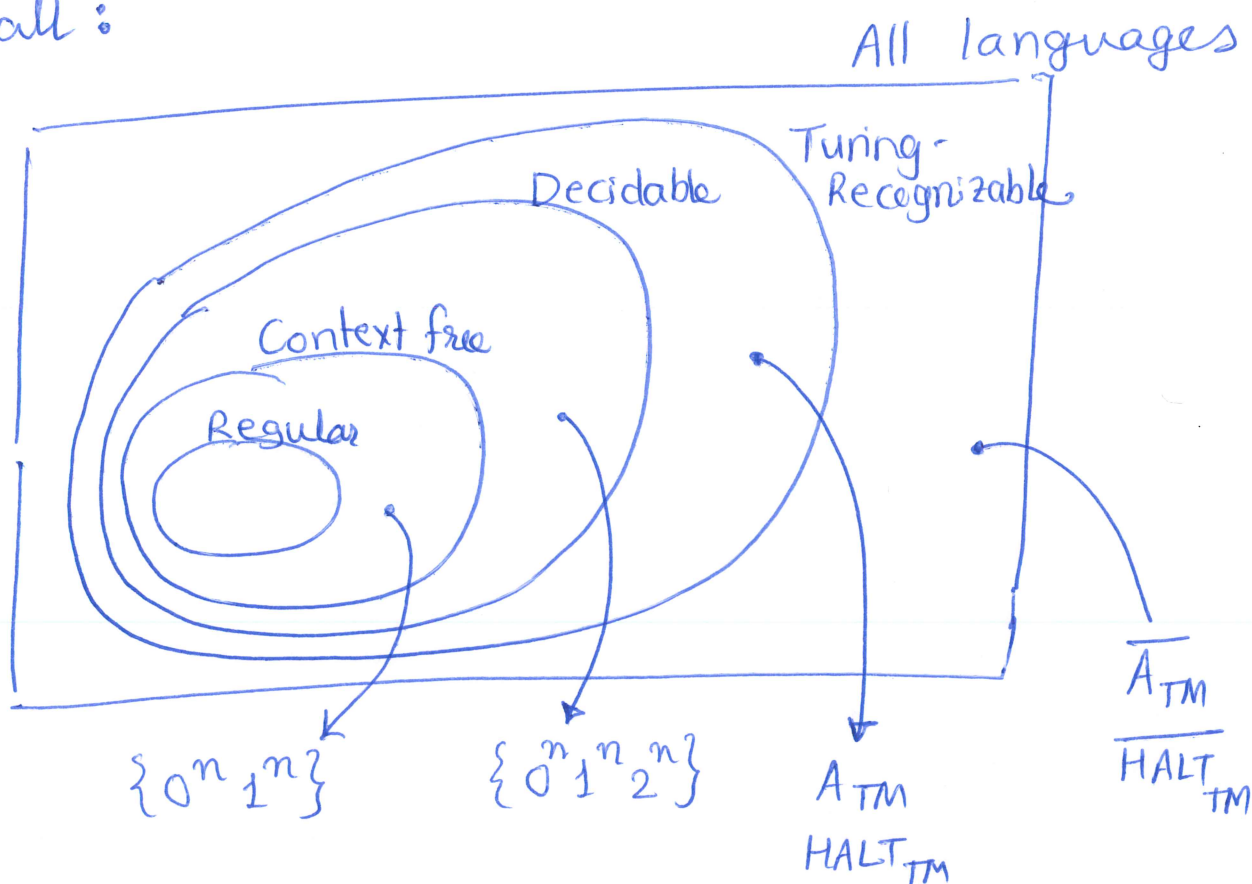 all :
All languages
Turing-
Recognizable
Decidable
Context free
Regular
{0ⁿ 1ⁿ}
{0ⁿ 1ⁿ 2ⁿ}
A_TM
HALT_TM
A̅_TM
H̅A̅L̅T̅_TM